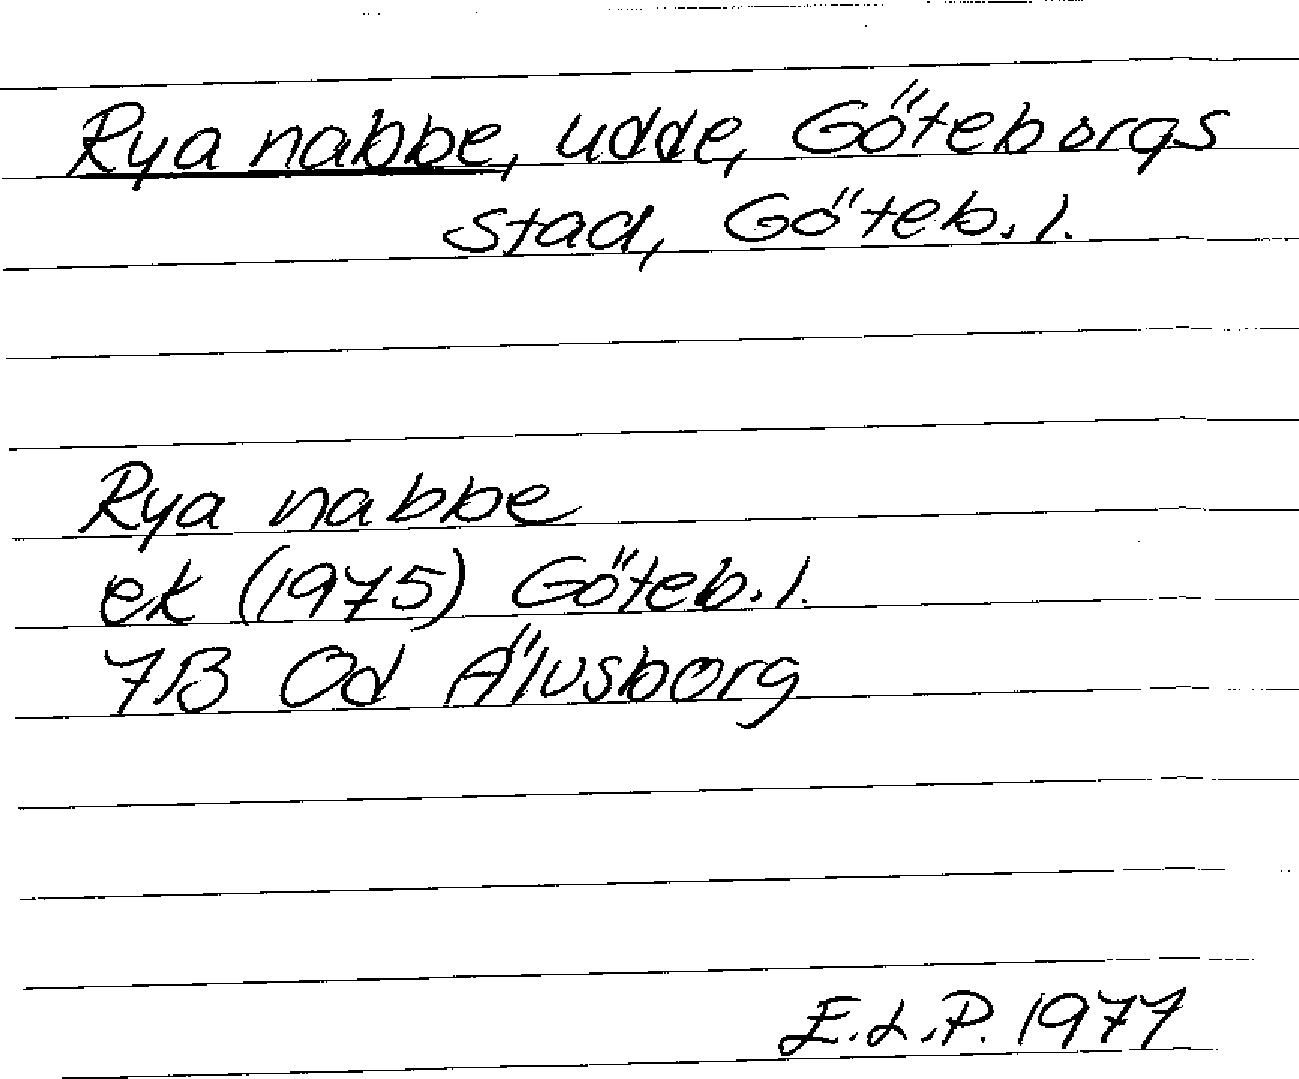 Rya nabbe, udde, Göteborgs
stad, Göteb. l.
Rya nabbe
ek (1975) Göteb. l.
7B Od Älvsborg
E.L.P. 1977